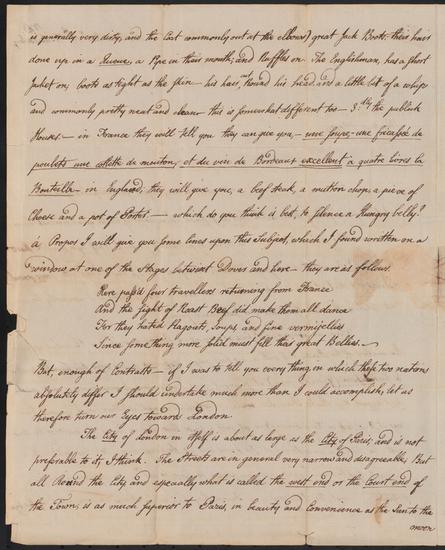 is generally very dirty, and the Coat commonly out at the elbows) great Jack Boots — their hair
done up in a Queue, a Pipe in their mouth, and Ruffles on. The Englishman, has a short
Jacket on; boots as tight as the skin — his hair, cut round his head and a little bit of a whip
and commonly pretty neat and clean — this is somewhat different too — 3.dly the publick
Houses — in France they will tell you they can give you, — une soupe, — une fricasée de
poulets une cotlette de mouton, et du vin de Bordeaux excellent a quatre livres la
Bouteille — in England; they will give you, a beef steak, a mutton chop, a piece of
Cheese and a pot of Porter. — which do you think is best, to silence a Hungry belly?
á Propos I will give you some lines upon this Subject, which I found written on a
window at one of the Stages betwixt Dover and here — they are as follows.
Here pass'd four travellers returning from France
And the sight of Roast Beef did make them all dance
For they hated Ragouts, Soups, and fine vermifellis
Since something more solid must fill their great Bellies. —
But, enough of Contrasts — if I was to tell you every thing, in which these two nations
absolutely differ I should undertake much more than I could accomplish, let us
therefore turn our Eyes toward London.
The City of London in itself is about as large as the City of Paris, and is not
preferable to it, I think. The Streets are in general very narrow and disagreeable. But
all Round the City and especially what is called the west end or the Court end of
the Town, is as much superior to Paris, in beauty and Convenience as the Sun to the
moon